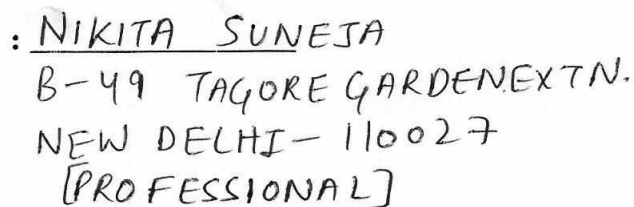 : NIKITA SUNEJA
B-49 TAGORE GARDEN EXTN.
NEW DELHI - 110027
[PROFESSIONAL]